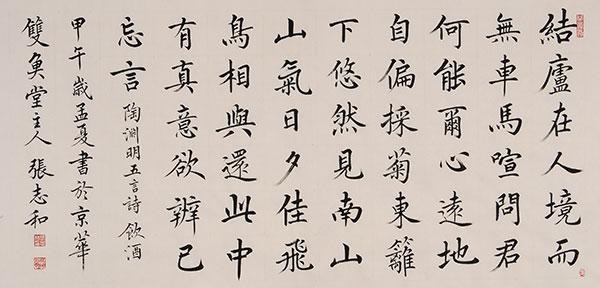 結廬在人境而
無車馬喧問君
何能爾心遠地
自偏採菊東籬
下悠然見南山
山氣日夕佳飛
鳥相與還此中
有真意欲辨已
忘言陶淵明五言詩飲酒
甲午歲孟夏書於京華
雙魚堂主人張志和